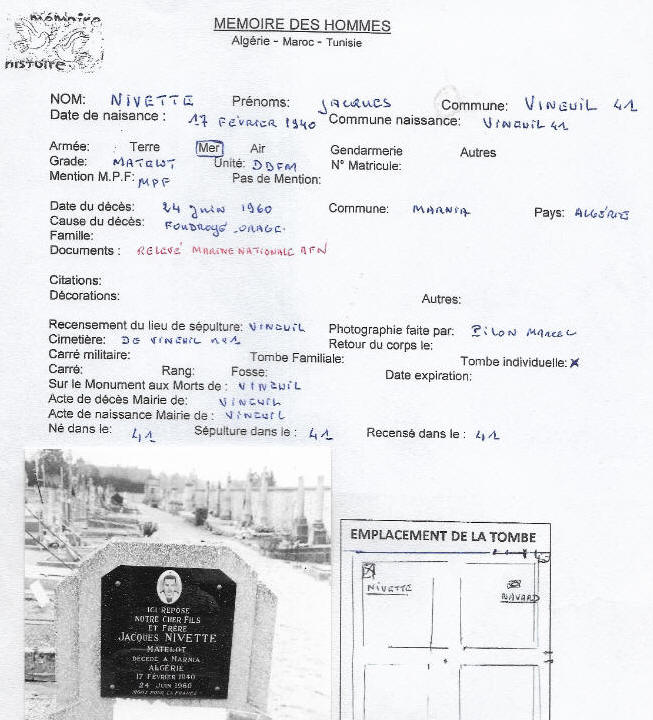 mémoire
histoire
MEMOIRE DES HOMMES
Algérie - Maroc - Tunisie
NOM: NIVETTE Prénoms: JACQUES Commune: VINEUIL 41
Date de naisance: 17 FÉVRIER 1940 Commune naissance: VINEUIL 41
Armée: Terre Mer Air Gendarmerie Autres
Grade: MATELOT Unité: DDFM N° Matricule:
Mention M.P.F: MPF Pas de Mention:
Date du décès: 24 juin 1960 Commune: MARNIA Pays: ALGÉRIE
Cause du décès: FOUDROYÉ ORAGE.
Famille:
Documents : RELEVÉ MARINE NATIONALE AFN
Citations:
Décorations: Autres:
Recensement du lieu de sépulture: VINEUIL Photographie faite par: PILON MARCEL
Cimetière: DE VINEUIL N°1 Retour du corps le:
Carré militaire: Tombe Familiale: Tombe individuelle: X
Carré: Rang: Fosse: Date expiration:
Sur le Monument aux Morts de : VINEUIL
Acte de décès Mairie de: VINEUIL
Acte de naissance Mairie de : VINEUIL
Né dans le: 41 Sépulture dans le : 41 Recensé dans le : 41
ICI REPOSE
NOTRE CHER FILS
ET FRÈRE
JACQUES NIVETTE
MATELOT
DÉCÉDÉ A MARNIA
ALGÉRIE
17 FÉVRIER 1940
24 JUIN 1960
MORT POUR LA FRANCE
EMPLACEMENT DE LA TOMBE
NIVETTE
NAVARD